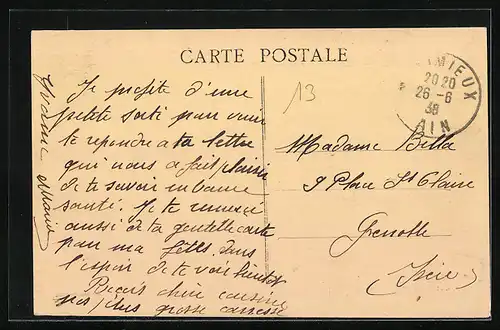 CARTE POSTALE
Je profite d'une
petite sortie pour venir
te repondre a ta lettre
qui nous a fait plaisir
de te savoir en bonne
santé. Je te remercie
aussi de ta gentille carte
pour ma fête, dans
l'espoir de te voir bientôt
Reçois chère cousine
nos plus grosse caresses
Yvonne
13
MIEUX
20 20
26-6
38
AIN
Madame Billa
9 Place St Claire
Grenoble
(Isère)